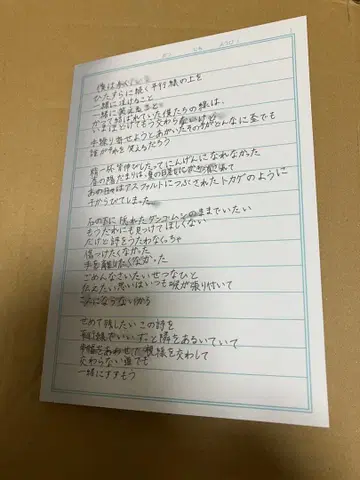 僕は
ひたすらに続く平行線の上を
一緒に歩けること
一緒に笑えること
かつて結ばれていた僕たちの線は、
いまほどけてもう交わらないけど
手繰り寄せようとあがいたその手がどんなに歪でも
誰がそれを笑えるだろう
精一杯背伸びしたってにんげんになれなかった
春の陽だまりは
あの日々はアスファルトにつぶされたトカゲのように
干からびてしまった
石の下に隠れたダンゴムシのままでいたい
もうだれにも見つけてほしくない
だけど詩をうたわなくっちゃ
傷つけたくなかった
手を離したくなかった
ごめんなさいたいせつなひと
伝えたい思いはいつも喉が張り付いて
ことばにならない
せめて残したい この詩を
平行線でいい、ずっと隣をあるいていて
歩幅をあわせて視線を交わして
交わらない道でも
一緒にすすもう